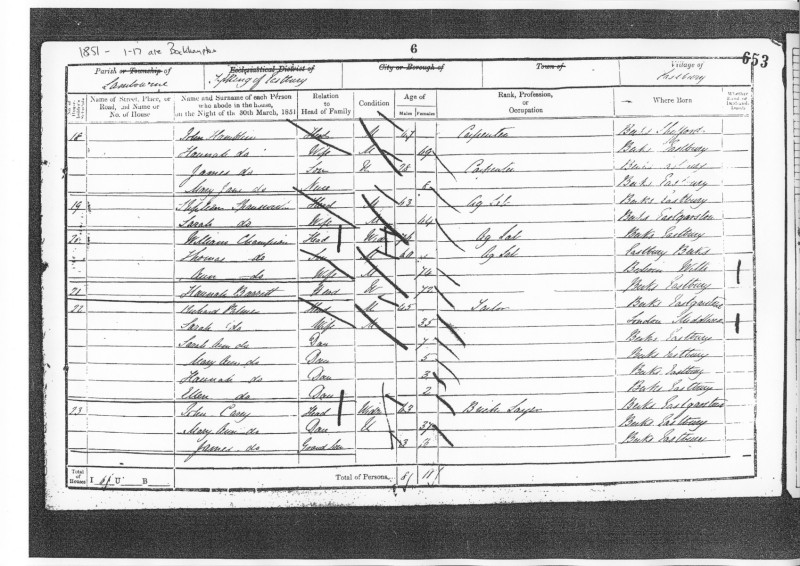 1851 - 1-17 are Bockhampton
6
653
Parish or Township of Ecclesiastical District of City or Borough of Town of Village of
Lambourne Tything of Eastbury Eastbury
Name of Street, Place, or Road, and Name or No. of House Name and Surname of each Person who abode in the house, on the Night of the 30th March, 1851 Relation to Head of Family Condition Age of Males Females Rank, Profession, or Occupation Where Born
18 John Head M 47 Carpenter Berks
Hannah do Wife M 49 Berks Eastbury
James do Son U 28 Carpenter Berks
Mary Jane do Niece 6 Berks Eastbury
19 Stephen Head M 63 Ag Lab Berks Eastbury
Sarah do Wife M 64 Berks Eastgarston
20 William Champion Head Wid 76 Ag Lab Berks Eastbury
Thomas do Son M Ag Lab Eastbury Berks
Ann do Wife M 74 Wilts
21 Hannah Barrett Head W 72 Berks Eastbury
22 Richard Palmer Head M 45 Tailor Berks Eastgarston
Sarah do Wife M 35 London Middlesex
Sarah Ann do Dau 7 Berks Eastbury
Mary Ann do Dau 5 Berks Eastbury
Hannah do Dau 3 Berks Eastbury
Ellen do Dau 2 Berks Eastbury
23 John Carey Head Widr 63 Brick Layer Berks Eastgarston
Mary Ann do Dau U 37 Berks Eastbury
James do Grand Son 3 Berks Eastbury
Total of Houses I 6 U B Total of Persons 8 11